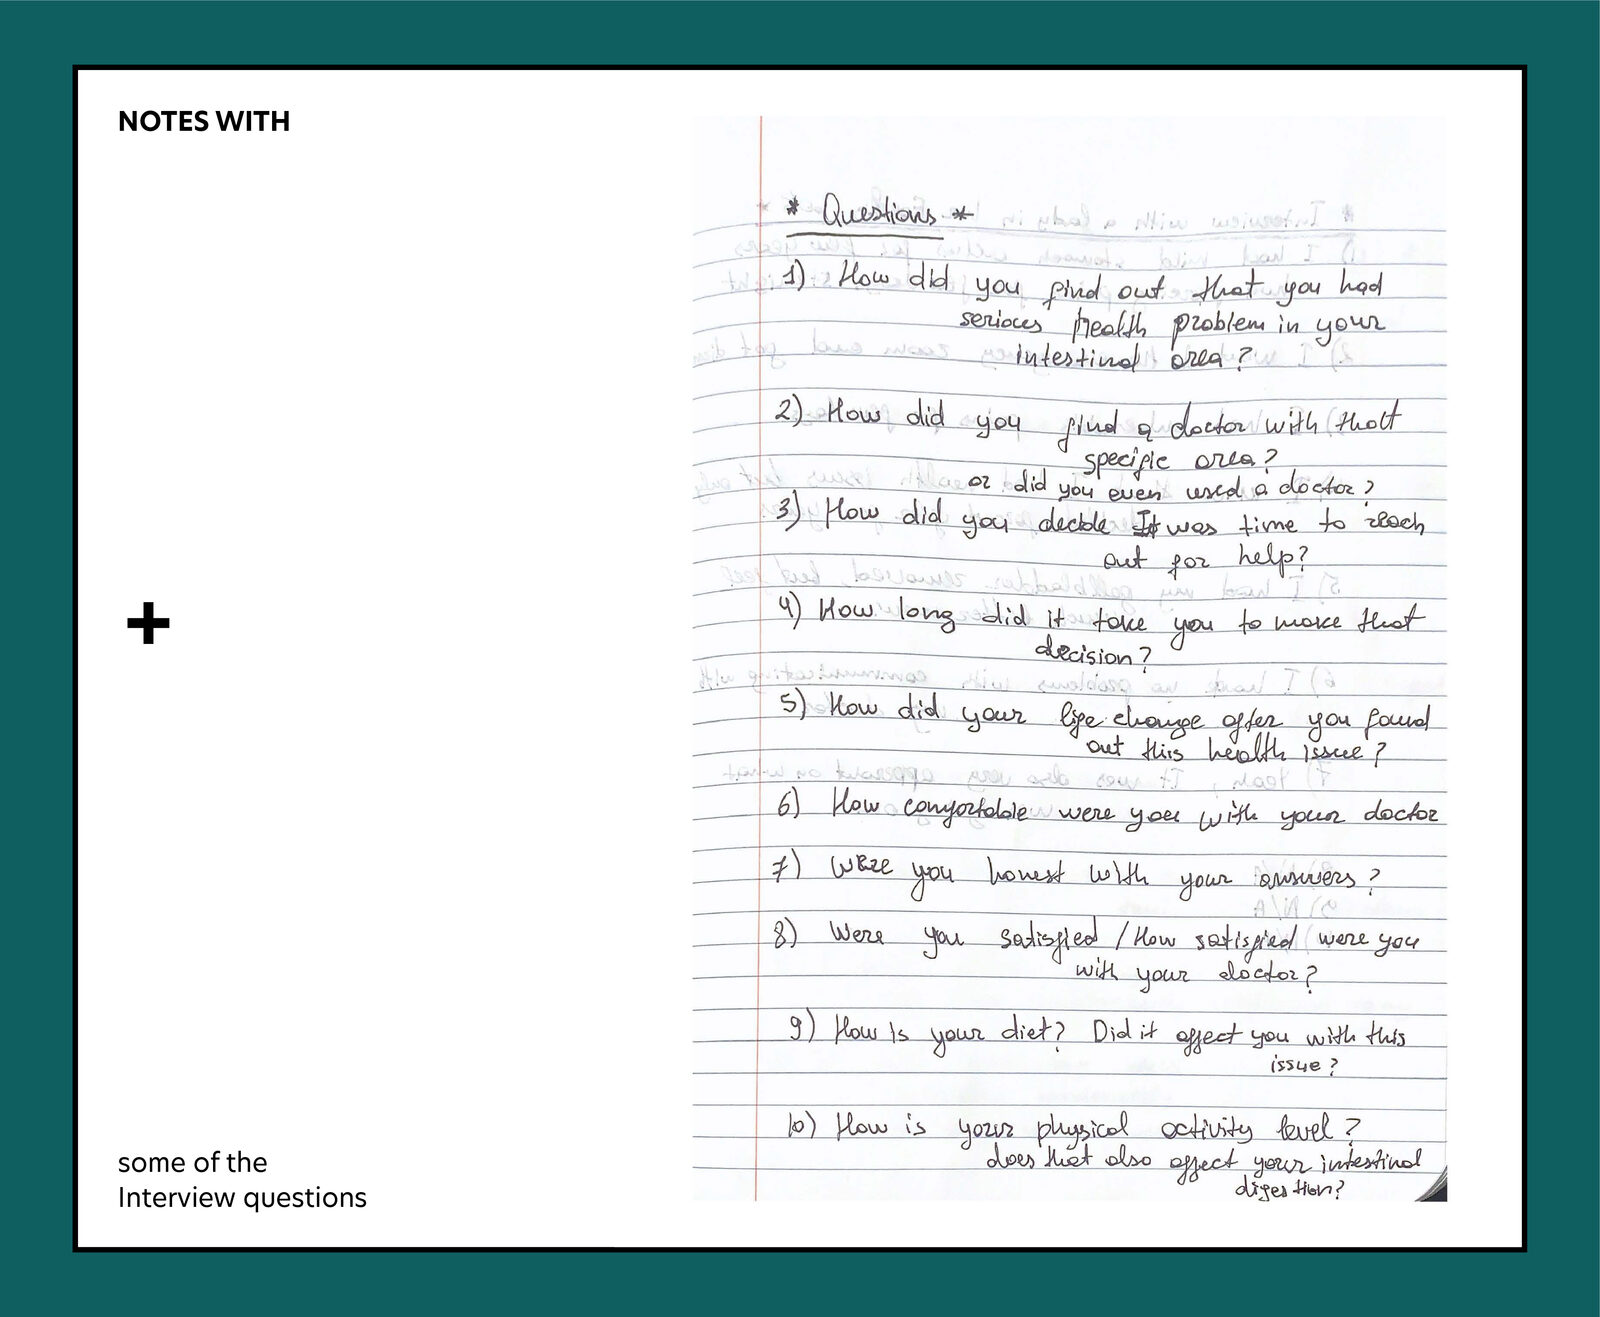 NOTES WITH
+
some of the
Interview questions
* Questions *
1) How did you find out that you had
serious health problem in your
intestinal area?
2) How did you find a doctor with that
specific area?
or did you even used a doctor?
3) How did you decide It was time to reach
out for help?
4) How long did it take you to make that
decision?
5) How did your life change after you found
out this health issue?
6) How comfortable were you with your doctor
7) Were you honest with your answers?
8) Were you satisfied / How satisfied were you
with your doctor?
9) How Is your diet? Did it affect you with this
issue?
10) How is your physical activity level?
does that also affect your intestinal
digestion?